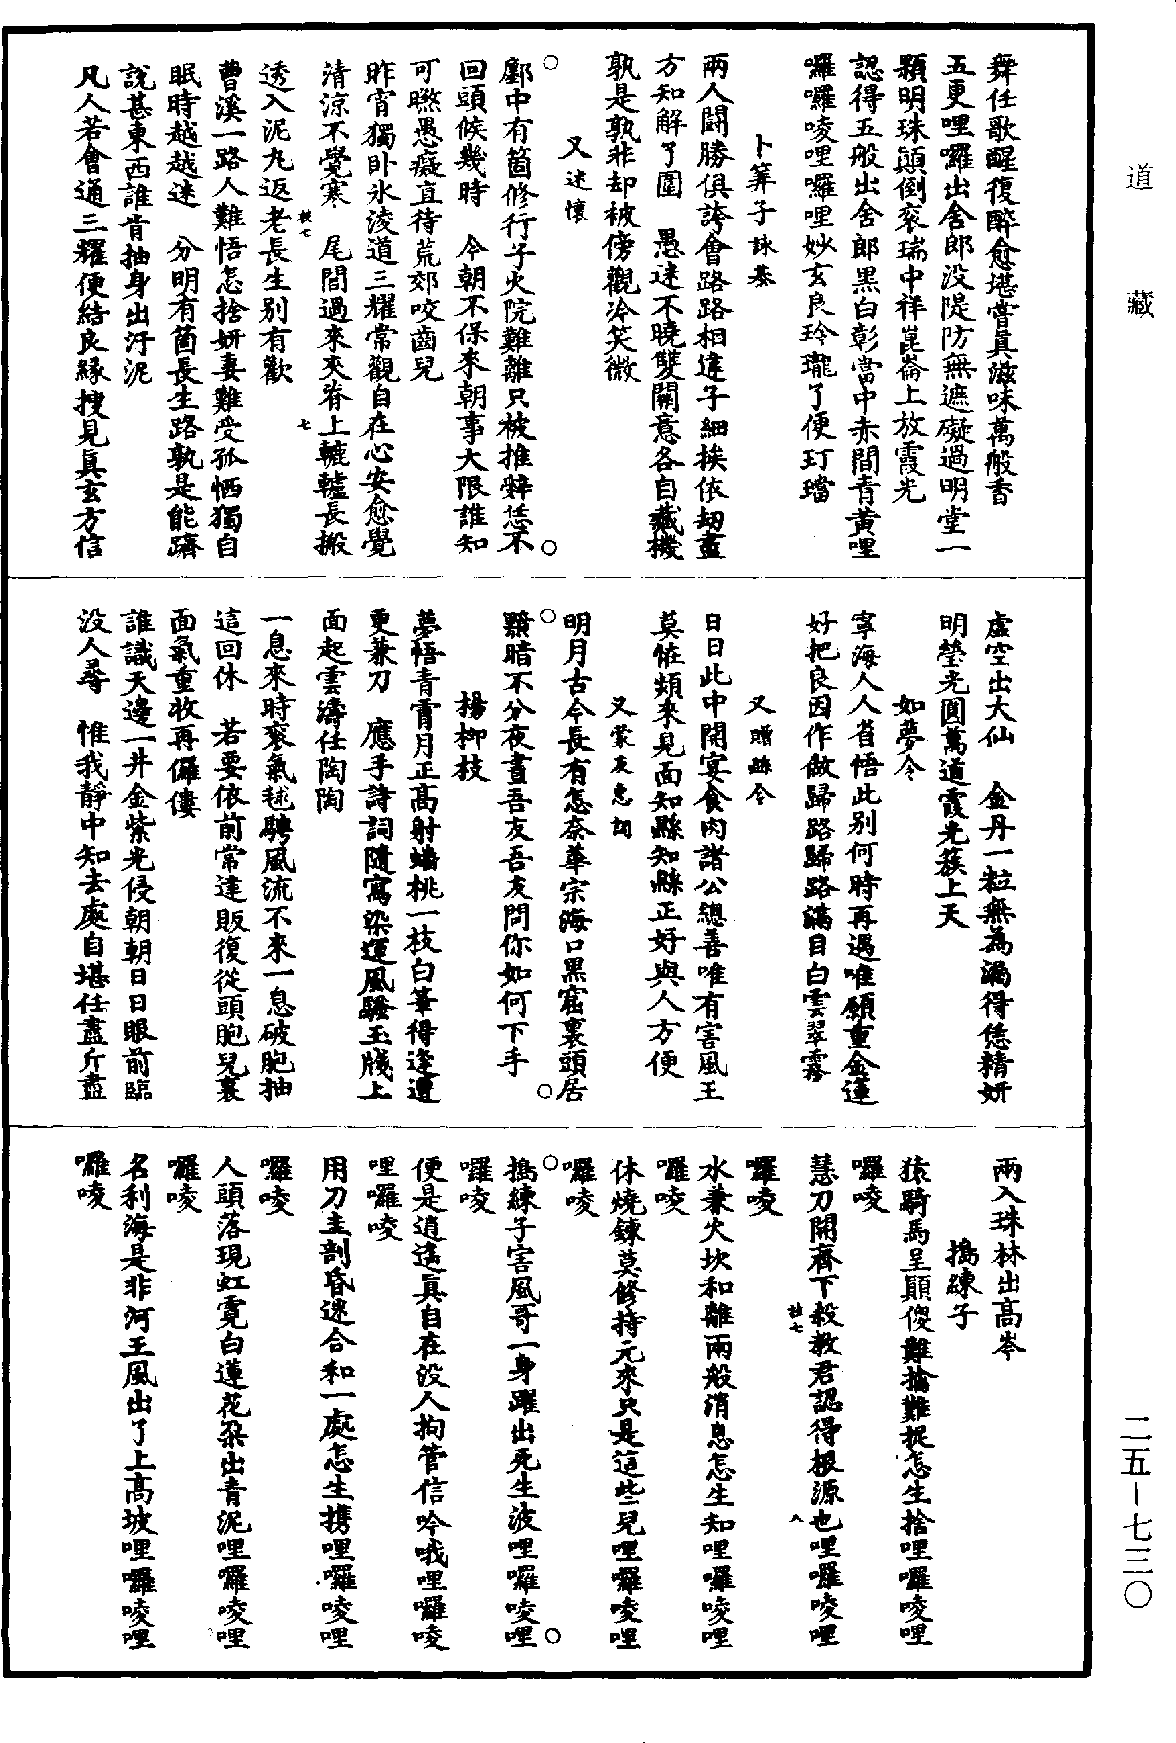 道藏
舞任歌醒復醉愈堪嘗眞滋味萬般香
五更哩囉出舍郎没隄防無遮礙過明堂一
顆明珠顛倒衮瑞中祥崑崙上放霞光
認得五般出舍郎黑白彰當中赤間青黃哩
囉囉唛哩囉哩妙玄良玲瓏了便玎璫
卜筭子詠棊
兩人鬭勝俱誇會路路相違子細挨依刼盡
方知解了圍　愚迷不曉雙關意各自藏機
孰是孰非却被傍觀冷笑微
又述懷
鄽中有箇修行子火院難離只被推辭恁不
回頭候幾時　今朝不保來朝事大限誰知
可㬠愚癡直待荒郊咬齒兒
昨宵獨卧氷淩道三耀常觀自在心安愈覺
清涼不覺寒　尾閭過來夾脊上轆轤長搬
透入泥丸返老長生别有歡
曹溪一路人難悟怎捨妍妻難受孤恓獨自
眠時越越迷　分明有箇長生路孰是能躋
說甚東西誰肯抽身出汙泥
凡人若會通三耀便結良緣搜見眞玄方信
扶七　七
虚空出大仙　金丹一粒無為漏得恁精妍
明瑩光圓萬道霞光簇上天
如夢令
寧海人人省悟此别何時再遇唯願重金蓮
好把良因作做歸路歸路滿目白雲翠霧
又贈縣令
日日此中開宴食肉諸公總善唯有害風王
莫怪頻來見面知縣知縣正好與人方便
又蒙友惠詞
明月古今長有怎奈華宗海口黑窟裏頭居
黯暗不分夜晝吾友吾友問你如何下手
楊柳枝
夢悟青霄月正高射蟠桃一枝白筆得逢遭
更兼刀　應手詩詞隨寫染運風騷玉牋上
面起雲濤任陶陶
一息來時衮氣毬騁風流不來一息破胞抽
這回休　若要依前常違販復從頭胞兒裏
面氣重收再儸僂
誰識天邊一井金紫光侵朝朝日日眼前臨
没人尋　惟我靜中知去處自堪任盡斤盡
兩入珠林出高岑
搗練子
猿騎馬呈顛傻難擒難捉怎生捨哩囉唛哩
囉唛
慧刀開齊下殺教君認得根源也哩囉唛哩
囉唛
扶七　八
水兼火坎和離兩般消息怎生知哩囉唛哩
囉唛
休燒鍊莫修持元來只是這些兒哩囉唛哩
囉唛
搗練子害風哥一身躍出死生波哩囉唛哩
囉唛
便是逍遙眞自在没人拘管信吟哦哩囉唛
哩囉唛
用刀圭剖昏迷合和一處怎生携哩囉唛哩
囉唛
人頭落現虹霓白蓮花朶出青泥哩囉唛哩
囉唛
名利海是非河王風出了上高坡哩囉唛哩
囉唛
二五－七三〇